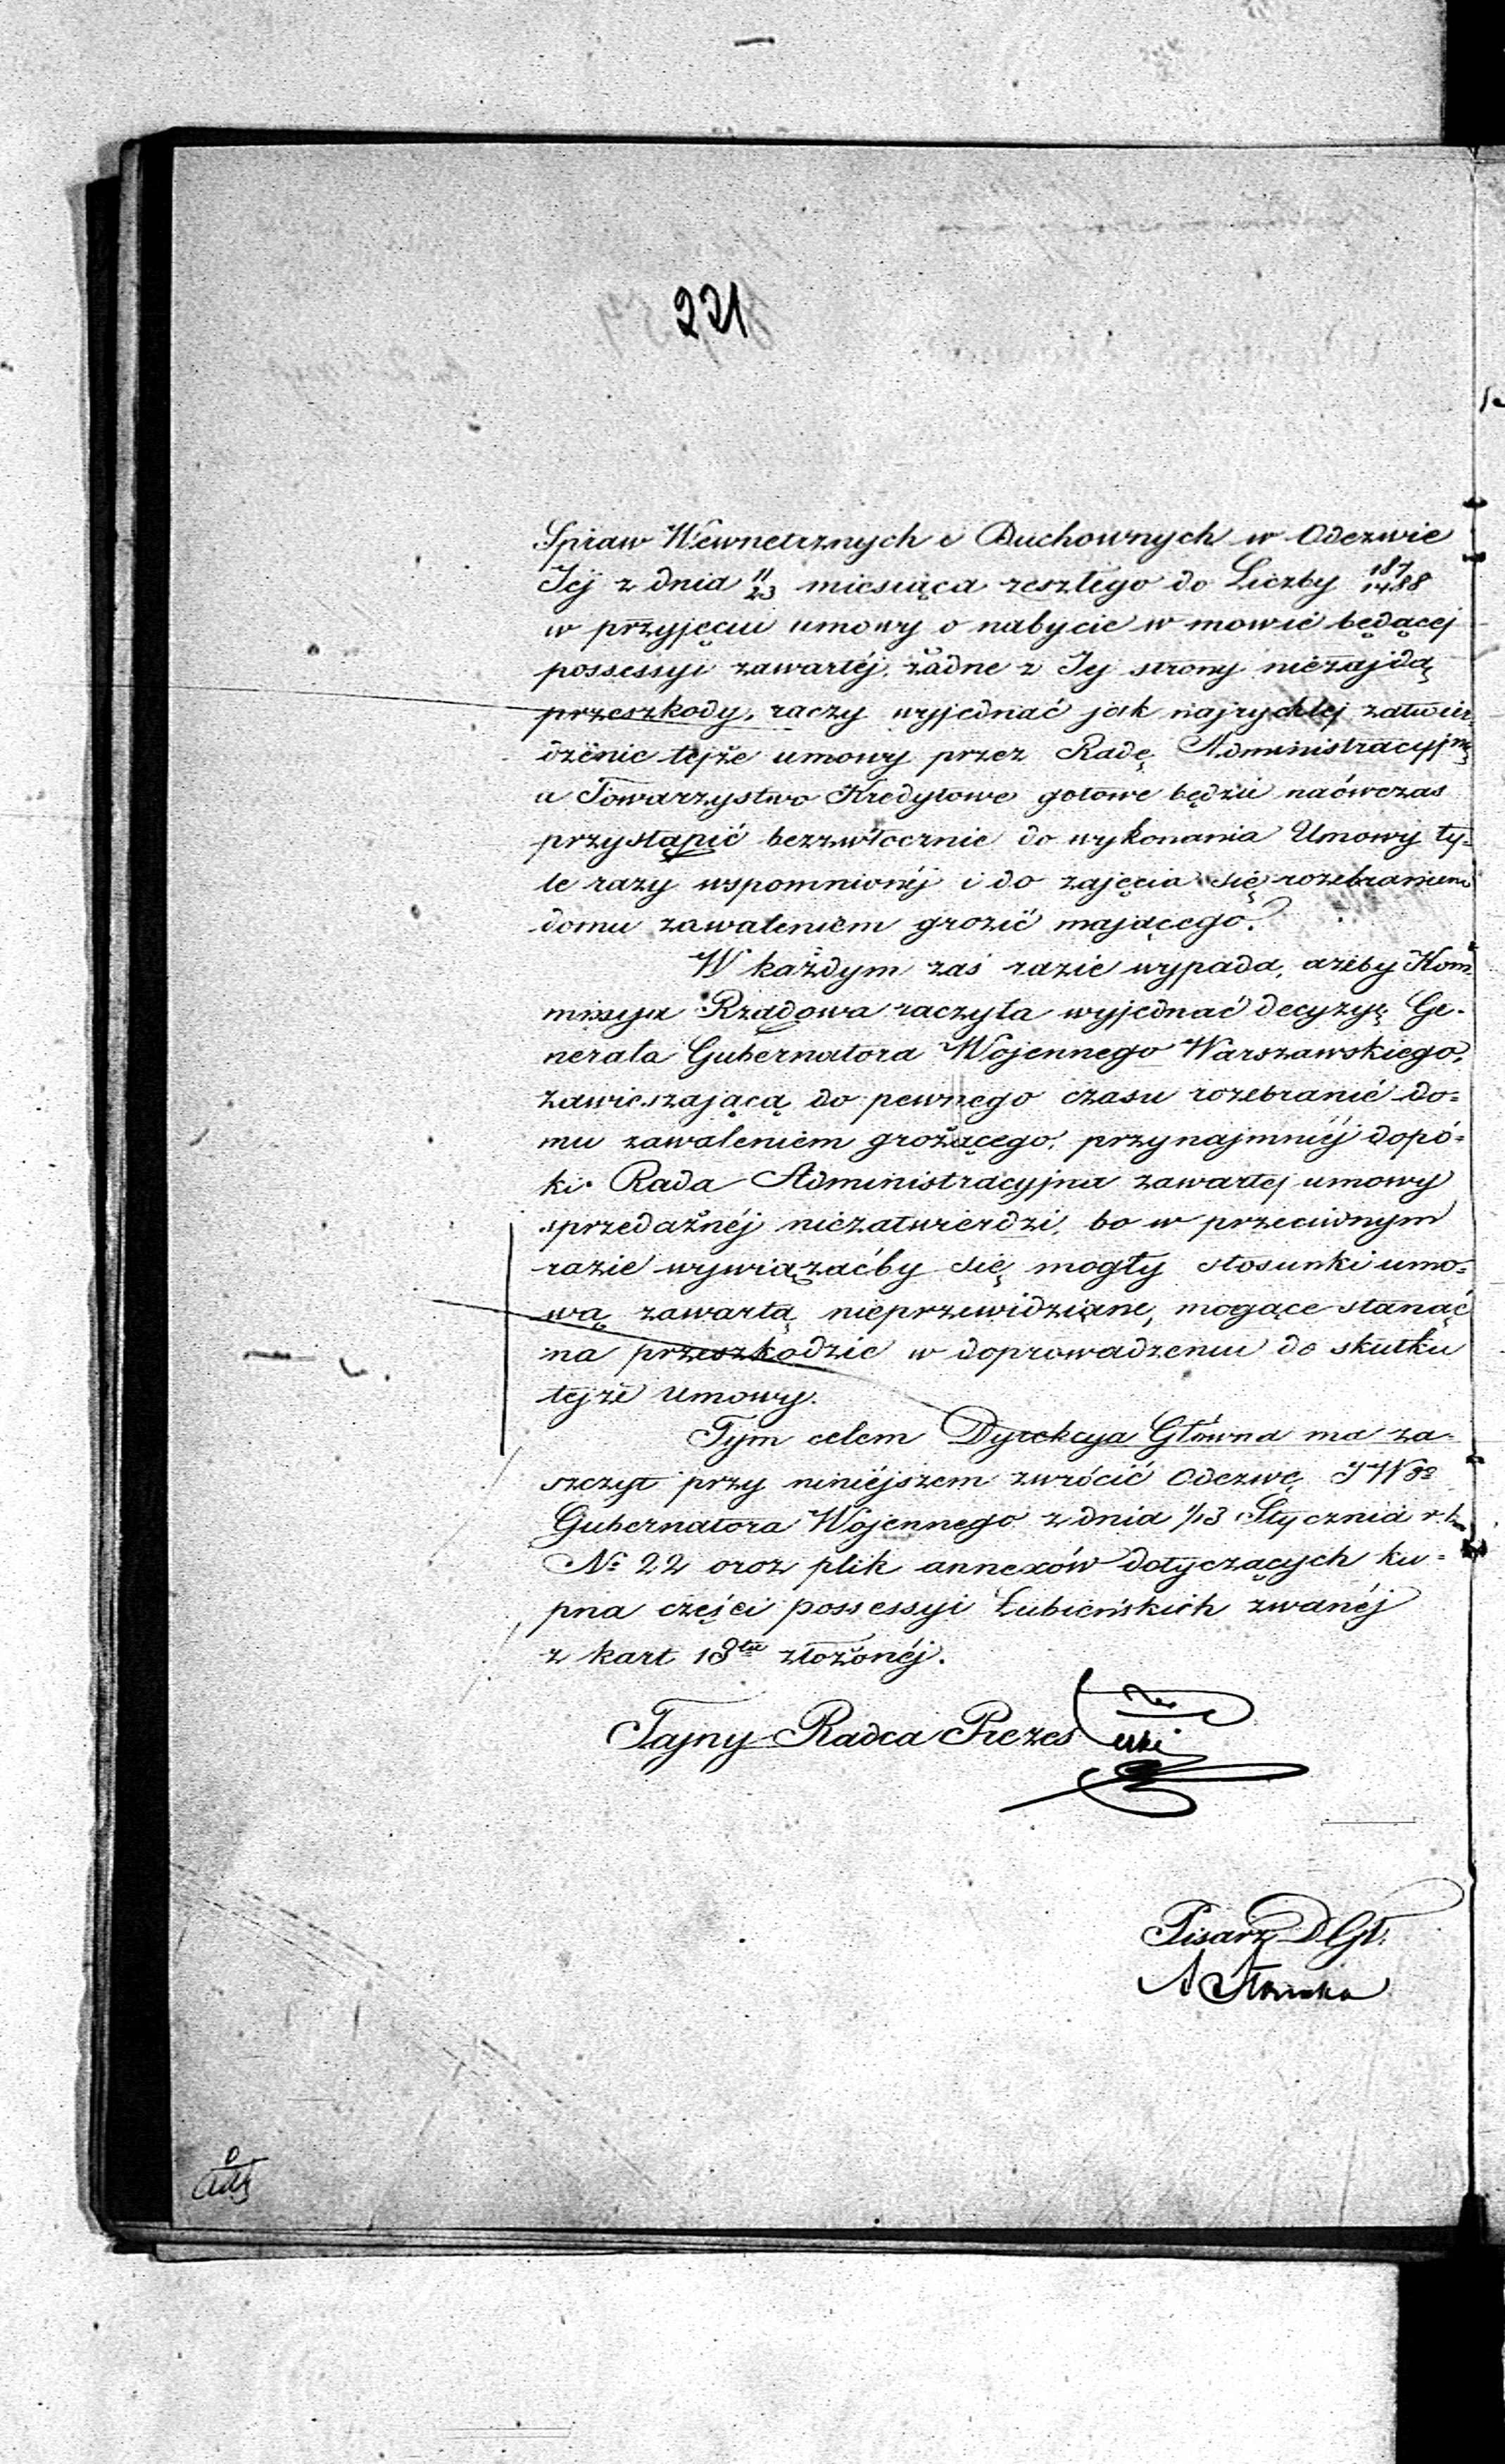 221
Spraw Wewnetrznych i Duchownych w Odezwie
Jej z dnia 11/23 miesiąca zeszłego do Liczby 187/1488
w przyjęciu umowy o nabycie w mowie będącej
possessyi zawartéj, żadne z Jej strony niezajdą
przeszkody, raczy wyjednać jak najrychlej zatwier-
dzenie tejże umowy przez Radę Administracyjną
a Towarzystwo Kredytowe gotowe będzie naówczas
przystąpić bezzwłocznie do wykonania Umowy ty-
le razy wspomnionéj i do zajęcia się rozebraniem
domu zawaleniem grozić mającego.
W każdym zaś razie wypada, ażeby Kom-
missya Rządowa raczyła wyjednać decyzyę Ge-
nerała Gubernatora Wojennego Warszawskiego,
zawieszającą do pewnego czasu rozebranie do=
mu zawaleniem grożącego, przynajmniéj dopó=
ki Rada Administracyjna zawartej umowy
sprzedażnéj niezatwierdzi, bo w przeciwnym
razie wywiązaćby się mogły stosunki umo=
wą zawartą nieprzewidziane, mogące stanąć
na przeszkodzie w doprowadzeniu do skutku
tejże Umowy.
Tym celem Dyrekcya Główna ma za-
szczyt przy niniéjszem zwrócić Odezwę JWgo
Gubernatora Wojennego z dnia 1/13 Stycznia r.b.
No 22 oraz plik annexów dotyczących ku=
pna części possessyi Łubieńskich zwanéj
z kart 18tu złożonéj.
Tajny Radca Prezes
Pisarz D Gł.